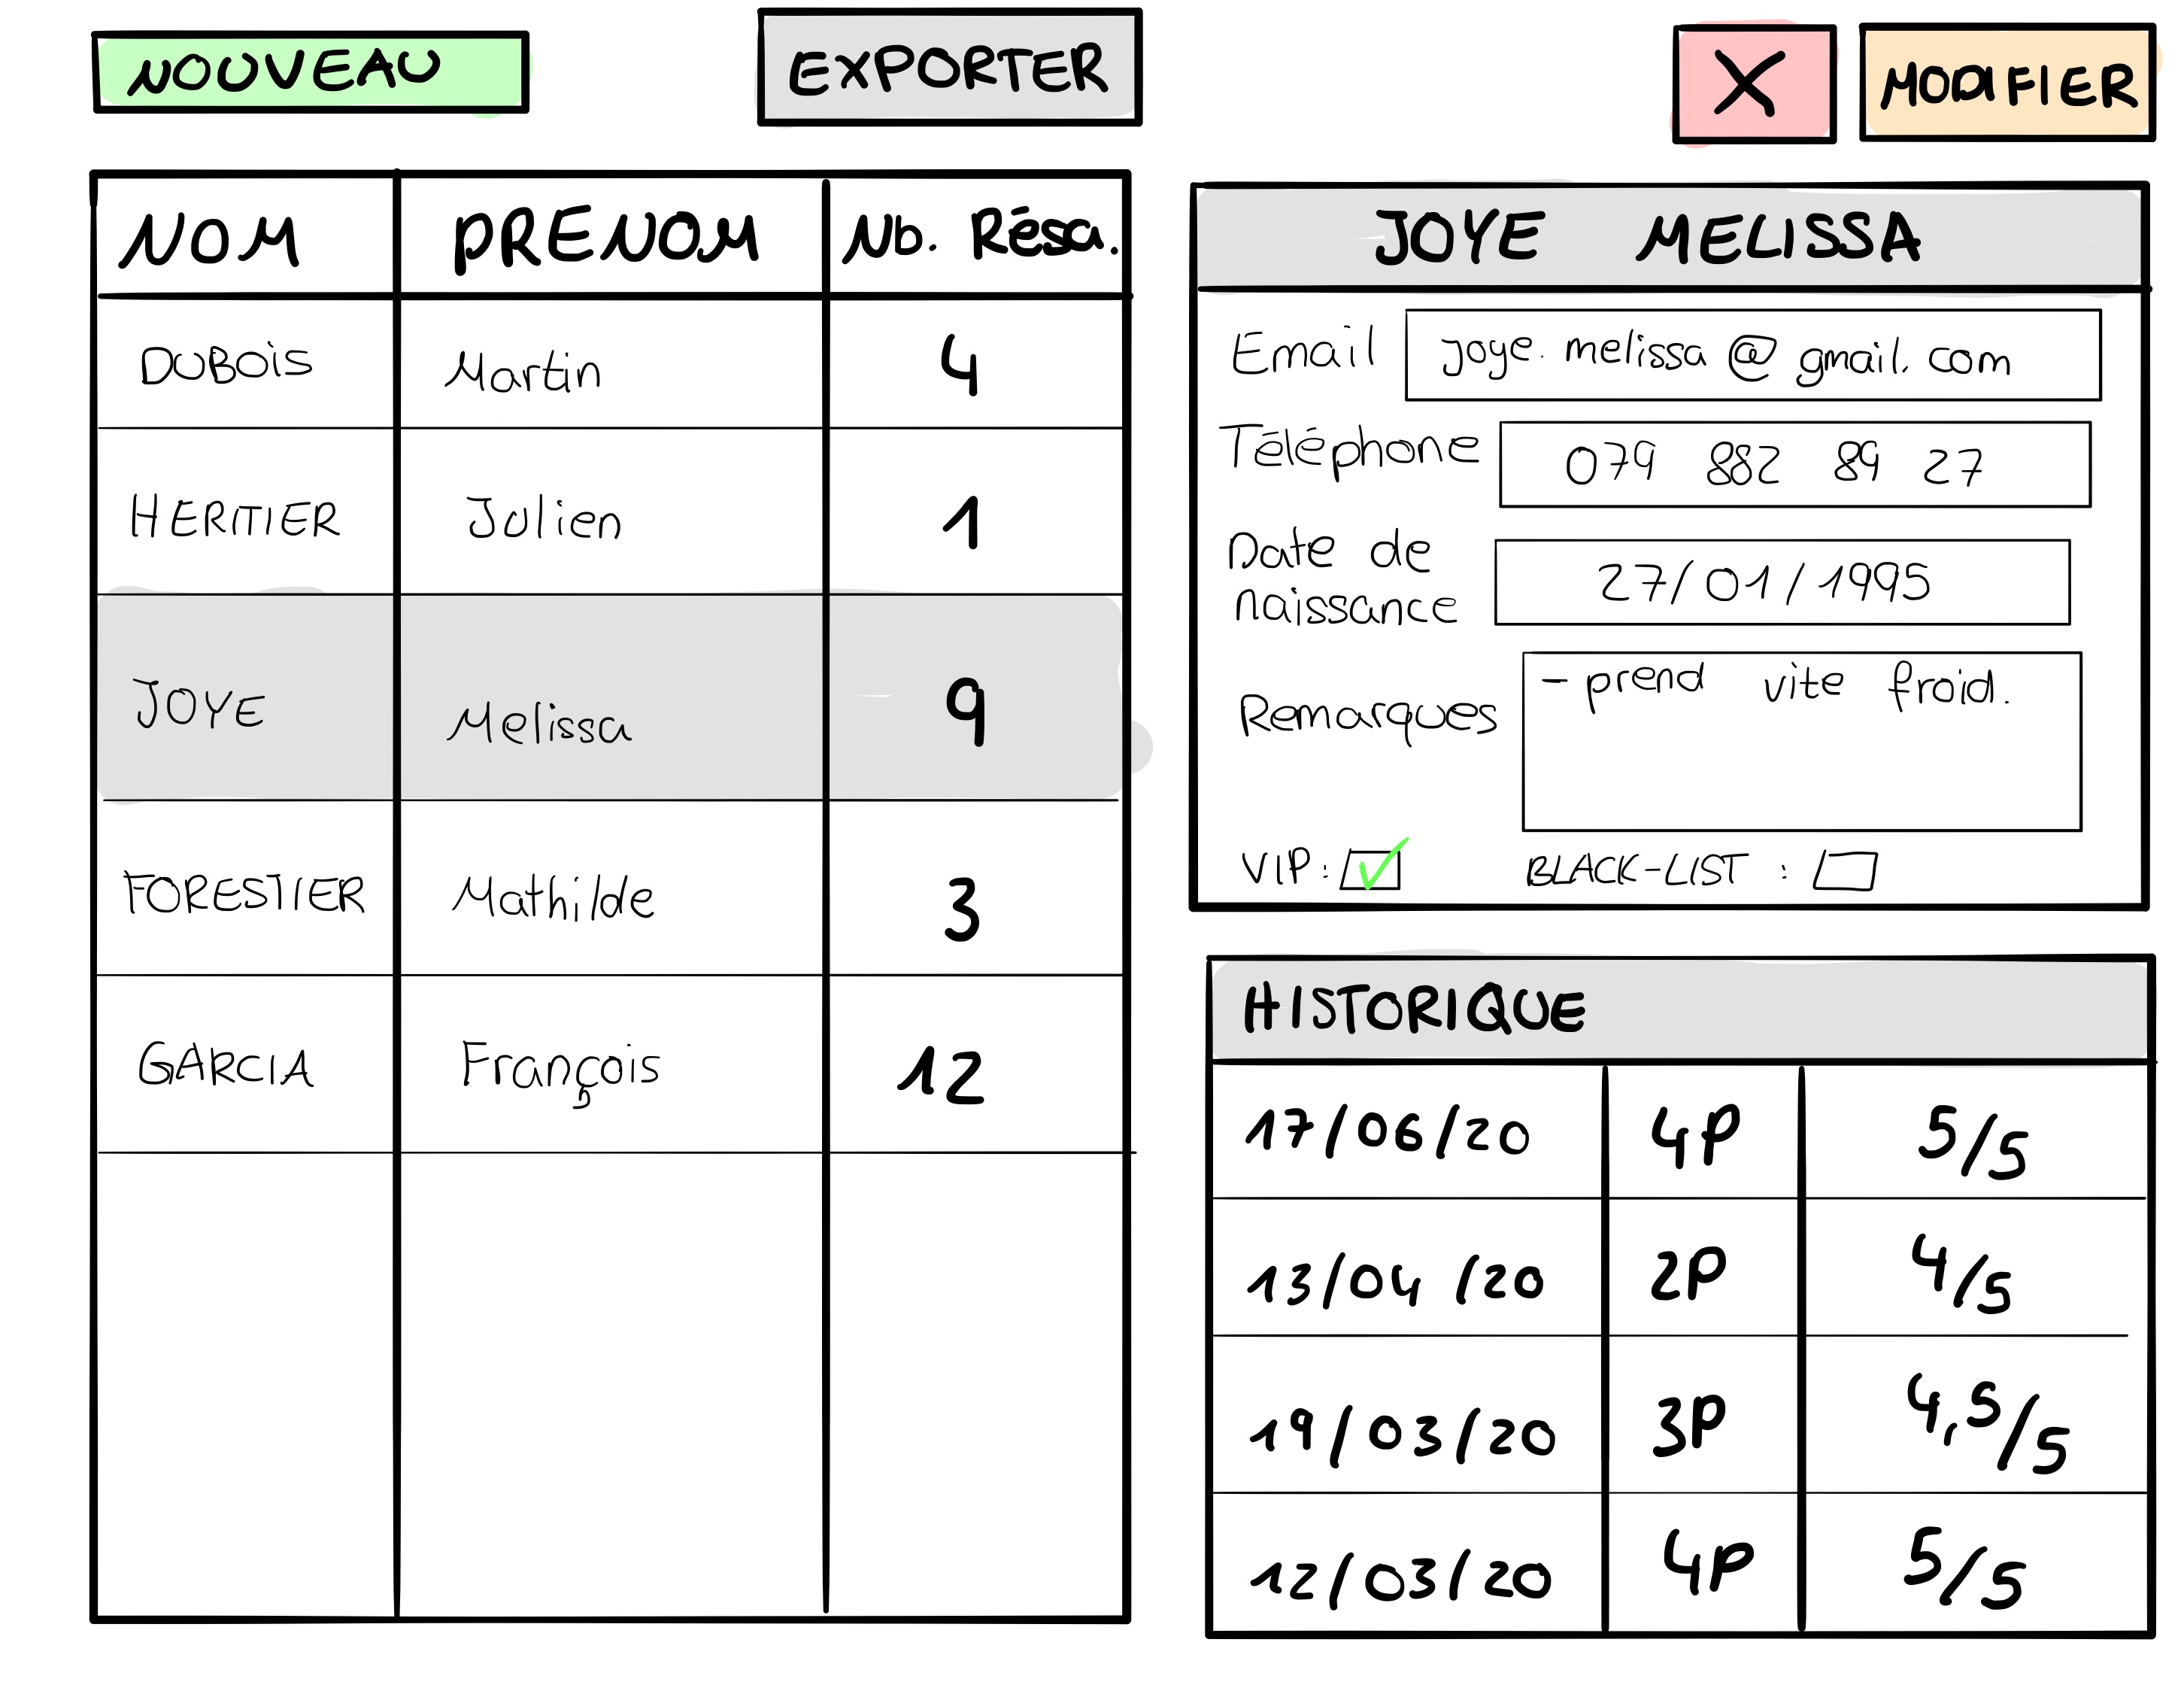 NOUVEAU
EXPORTER
X
MODIFIER
NOM PRENOM Nb. Résa.
DUBOiS Martin 4
HERITIER Julien 1
JOYE Melissa 9
FORESTIER Mathilde 3
GARCIA François 12
JOYE MELISSA
Email joye.melissa@gmail.com
Téléphone 079 882 89 27
Date de
naissance 27/01/1995
Remarques - prend vite froid.
VIP: BLACK-LIST :
HISTORIQUE
17/06/20 4P 5/5
13/04/20 2P 4/5
19/03/20 3P 4,5/5
12/03/20 4P 5/5